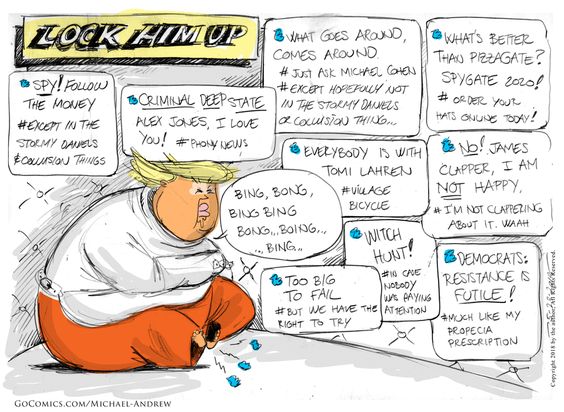 LOCK HIM UP
SPY! FOLLOW
THE MONEY
#EXCEPT IN THE
STORMY DANIELS
& COLLUSION THINGS
CRIMINAL DEEP STATE
ALEX JONES, I LOVE
YOU! #PHONY NEWS
WHAT GOES AROUND,
COMES AROUND
# JUST ASK MICHAEL COHEN
#EXCEPT HOPEFULLY NOT
IN THE STORMY DANIELS
OR COLLUSION THING...
WHAT'S BETTER
THAN PIZZAGATE?
SPYGATE 2020!
# ORDER YOUR
HATS ONLINE TODAY!
EVERYBODY IS WITH
TOMI LAHREN
#VILLAGE
BICYCLE
NO! JAMES
CLAPPER, I AM
NOT HAPPY.
#I'M NOT CLAPPERING
ABOUT IT. WAAH
BING, BONG,
BING BING
BONG...BOING...
...BING...
WITCH
HUNT!
#IN CASE
NOBODY
WAS PAYING
ATTENTION
TOO BIG
TO FAIL
#BUT WE HAVE THE
RIGHT TO TRY
DEMOCRATS:
RESISTANCE IS
FUTILE!
#MUCH LIKE MY
PROPECIA
PRESCRIPTION
Copyright 2018 by the author. All Rights Reserved.
GOCOMICS.COM/MICHAEL-ANDREW